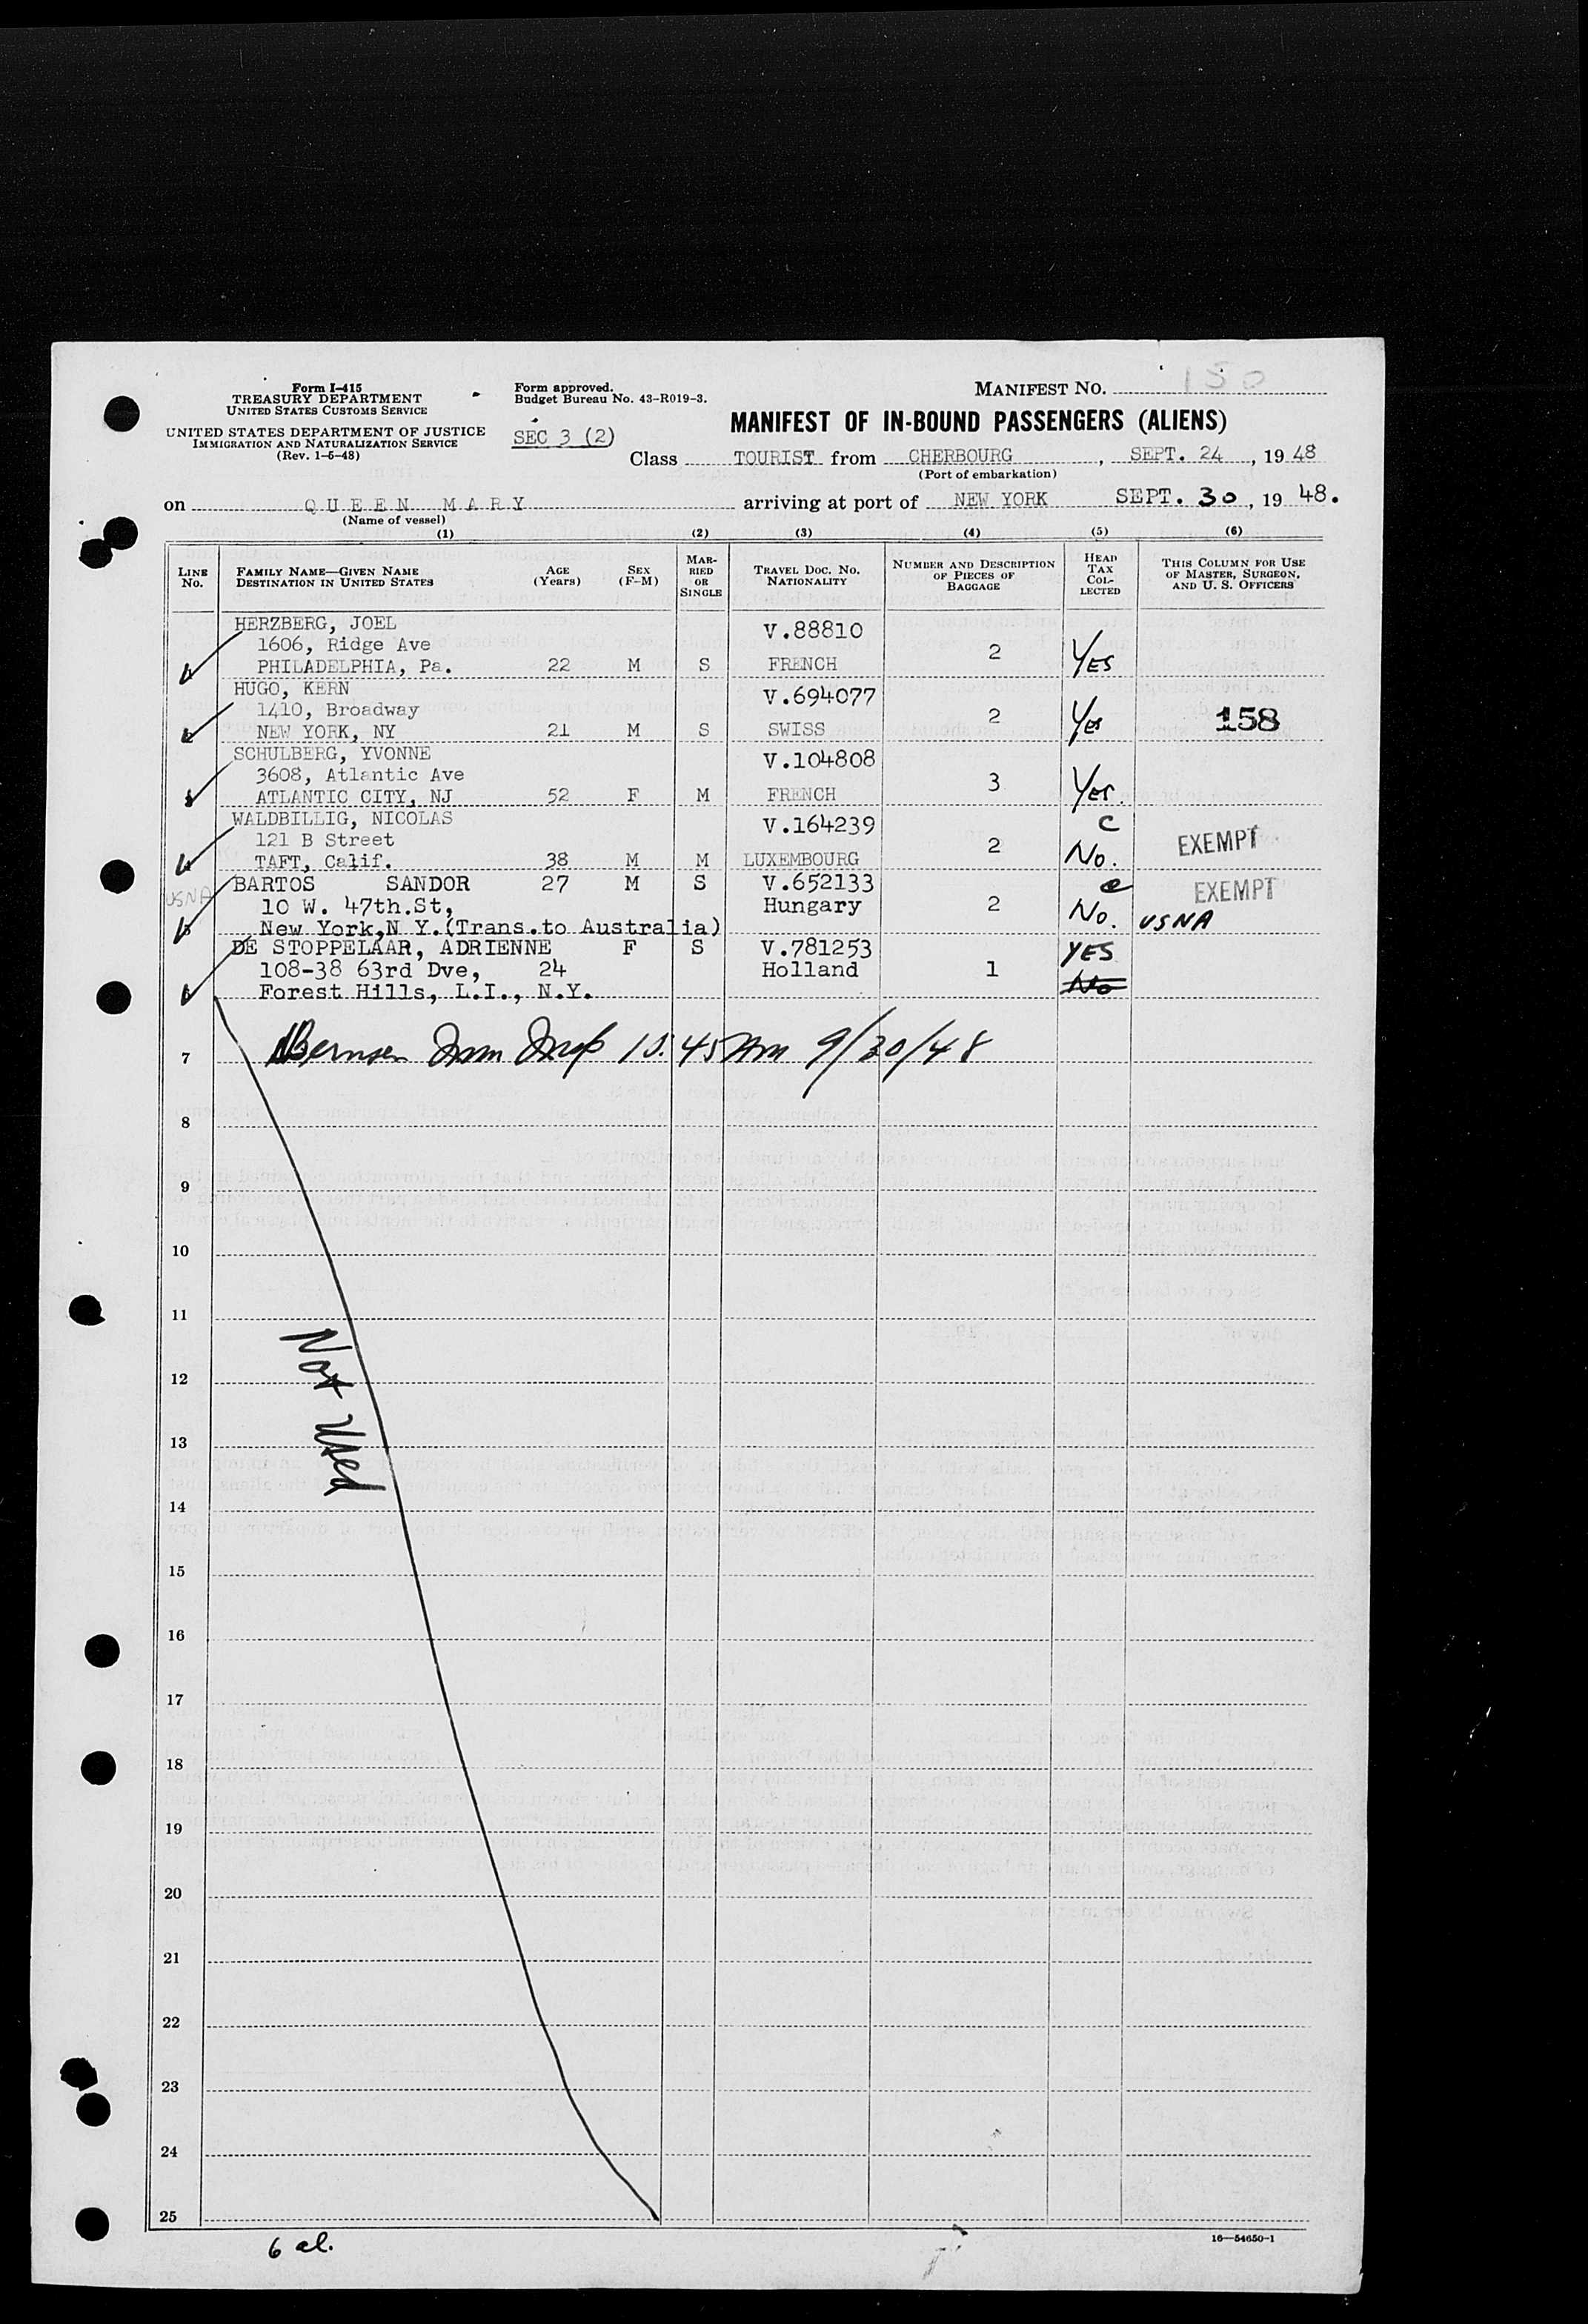 150
Form I-415
TREASURY DEPARTMENT
UNITED STATES CUSTOMS SERVICE
UNITED STATES DEPARTMENT OF JUSTICE
IMMIGRATION AND NATURALIZATION SERVICE
(Rev. 1-5-48)
Form approved.
Budget Bureau No. 43-R019-3.
SEC 3 (2)
MANIFEST NO.
MANIFEST OF IN-BOUND PASSENGERS (ALIENS)
Class TOURIST from CHERBOURG, SEPT. 24, 1948
(Port of embarkation)
on QUEEN MARY arriving at port of NEW YORK SEPT. 30, 1948.
(Name of vessel)
(1) (2) (3) (4) (5) (6)
LINE No. FAMILY NAME—GIVEN NAME DESTINATION IN UNITED STATES AGE (Years) SEX (F-M) MARRIED OR SINGLE TRAVEL DOC. NO. NATIONALITY NUMBER AND DESCRIPTION OF PIECES OF BAGGAGE HEAD TAX COLLECTED THIS COLUMN FOR USE OF MASTER, SURGEON, AND U. S. OFFICERS
HERZBERG, JOEL V.88810
1606, Ridge Ave 2 YES
PHILADELPHIA, Pa. 22 M S FRENCH
HUGO, KERN V.694077
1410, Broadway 2 Yes 158
NEW YORK, NY 21 M S SWISS
SCHULBERG, YVONNE V.104808
3608, Atlantic Ave 3 Yes.
ATLANTIC CITY, NJ 52 F M FRENCH
WALDBILLIG, NICOLAS V.164239 C
121 B Street 2 No. EXEMPT
TAFT, Calif. 38 M M LUXEMBOURG
USNA BARTOS SANDOR 27 M S V.652133 EXEMPT
10 W. 47th.St, Hungary 2 No. USNA
New York,N Y.(Trans.to Australia)
DE STOPPELAAR, ADRIENNE F S V.781253 YES
108-38 63rd Dve, 24 Holland 1 No
Forest Hills, L.I., N.Y.
7 10:45 Am 9/30/48
8
9
10
11
12
13
14
15
16
17
18
19
20
21
22
23
24
25
Not Used
6 al.
16—54650-1